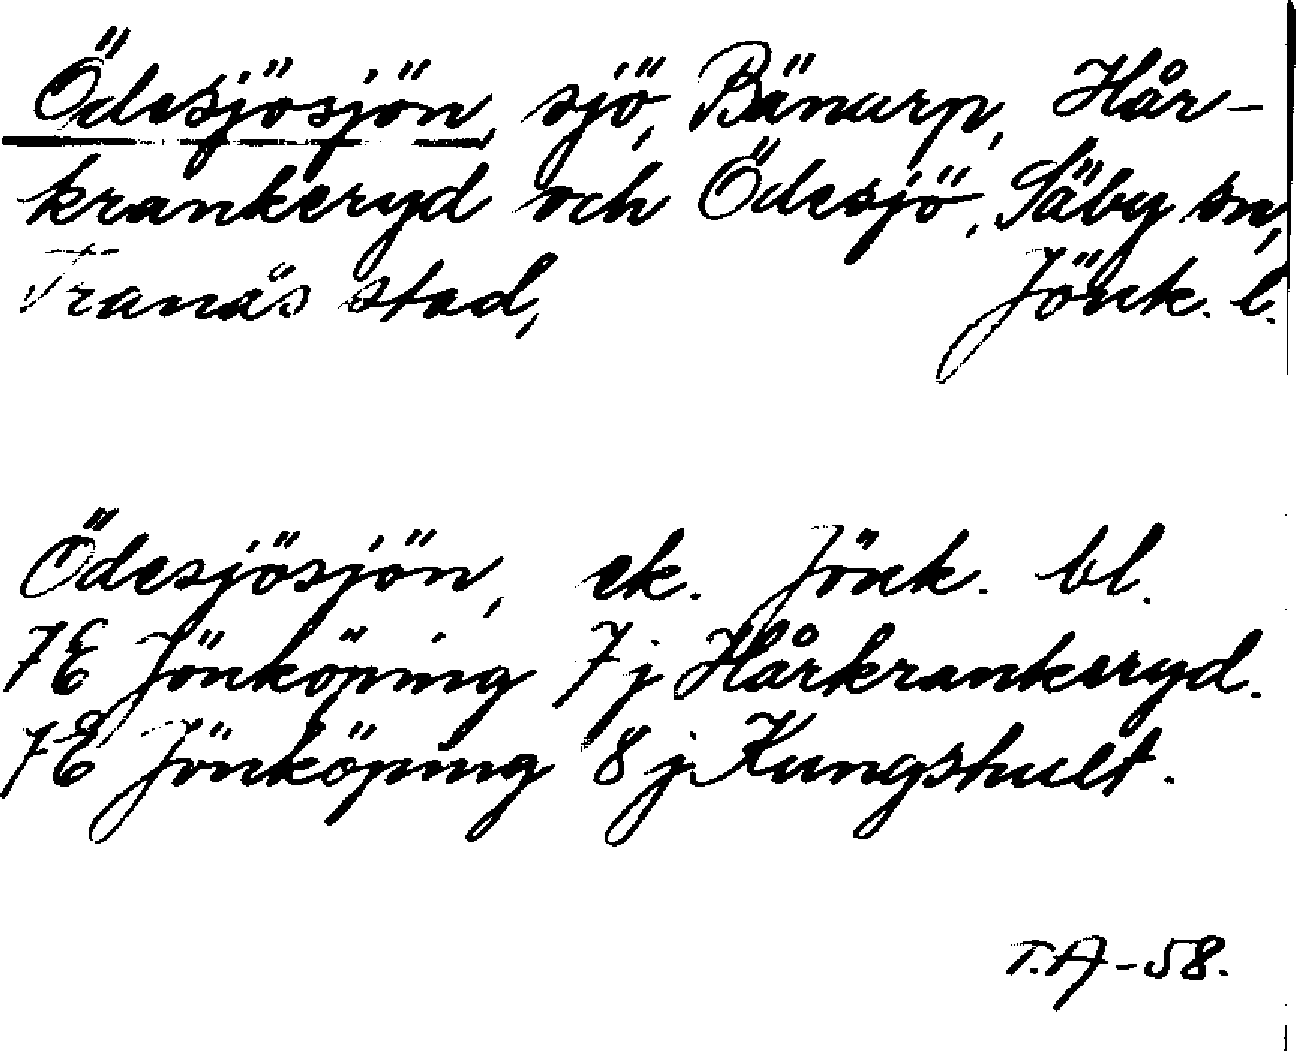 Ödesjösjön, sjö, Bänarp, Hår-
krankeryd och Ödesjö, Säby sn,
Tranås stad, Jönk. l.
Ödesjösjön, ek. Jönk. bl.
7E Jönköping 7j Hårkrankeryd.
7E Jönköping 8j Kungshult.
T.A-58.